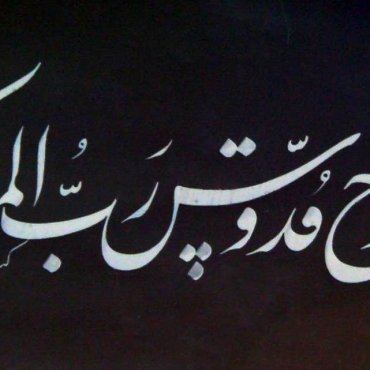 ح قُدّوس رَبُّ الم